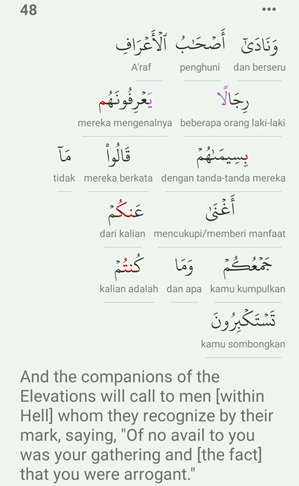 48 •••
وَنَادَىٰٓ أَصْحَـٰبُ ٱلْأَعْرَافِ
A'raf penghuni dan berseru
رِجَالًا يَعْرِفُونَهُم
mereka mengenalnya beberapa orang laki-laki
بِسِيمَىٰهُمْ قَالُوا۟ مَآ
tidak mereka berkata dengan tanda-tanda mereka
أَغْنَىٰ عَنكُمْ
dari kalian mencukupi/memberi manfaat
جَمْعُكُمْ وَمَا كُنتُمْ
kalian adalah dan apa kamu kumpulkan
تَسْتَكْبِرُونَ
kamu sombongkan
And the companions of the
Elevations will call to men [within
Hell] whom they recognize by their
mark, saying, "Of no avail to you
was your gathering and [the fact]
that you were arrogant."